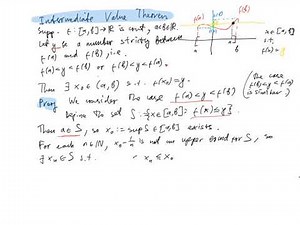 Intermediate Value Theorem
Supp. f: [a,b]→ℝ is cont., a<b∈ℝ
Let y be a number strictly between
f(a) and f(b), i.e.
f(a)<y<f(b) or f(b)<y<f(a).
Then ∃ x₀∈(a,b) s.t. f(x₀)=y.
Proof We consider the case f(a)<y<f(b)
(the case f(b)<y<f(a) is similar)
Define the set S:={x∈[a,b]: f(x)≤y}
Then a∈S, so x₀:=sup S∈[a,b] exists.
For each n∈ℕ, x₀-1/n is not an upper bound for S, so
∃ xₙ∈S s.t. xₙ≤x₀
f(a)
f(b)
a
b
s.t.